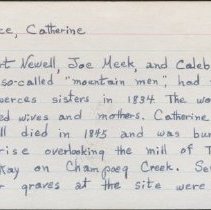 ce, Catherine
rt Newell, Joe Meek, and Caleb
so-called "mountain men", had
erces sisters in 1834. The wo
ed wives and mothers. Catherine
ll died in 1845 and was bur
rise overlooking the mill of T
Kay on Champoeg Creek. Se
r graves at the site were